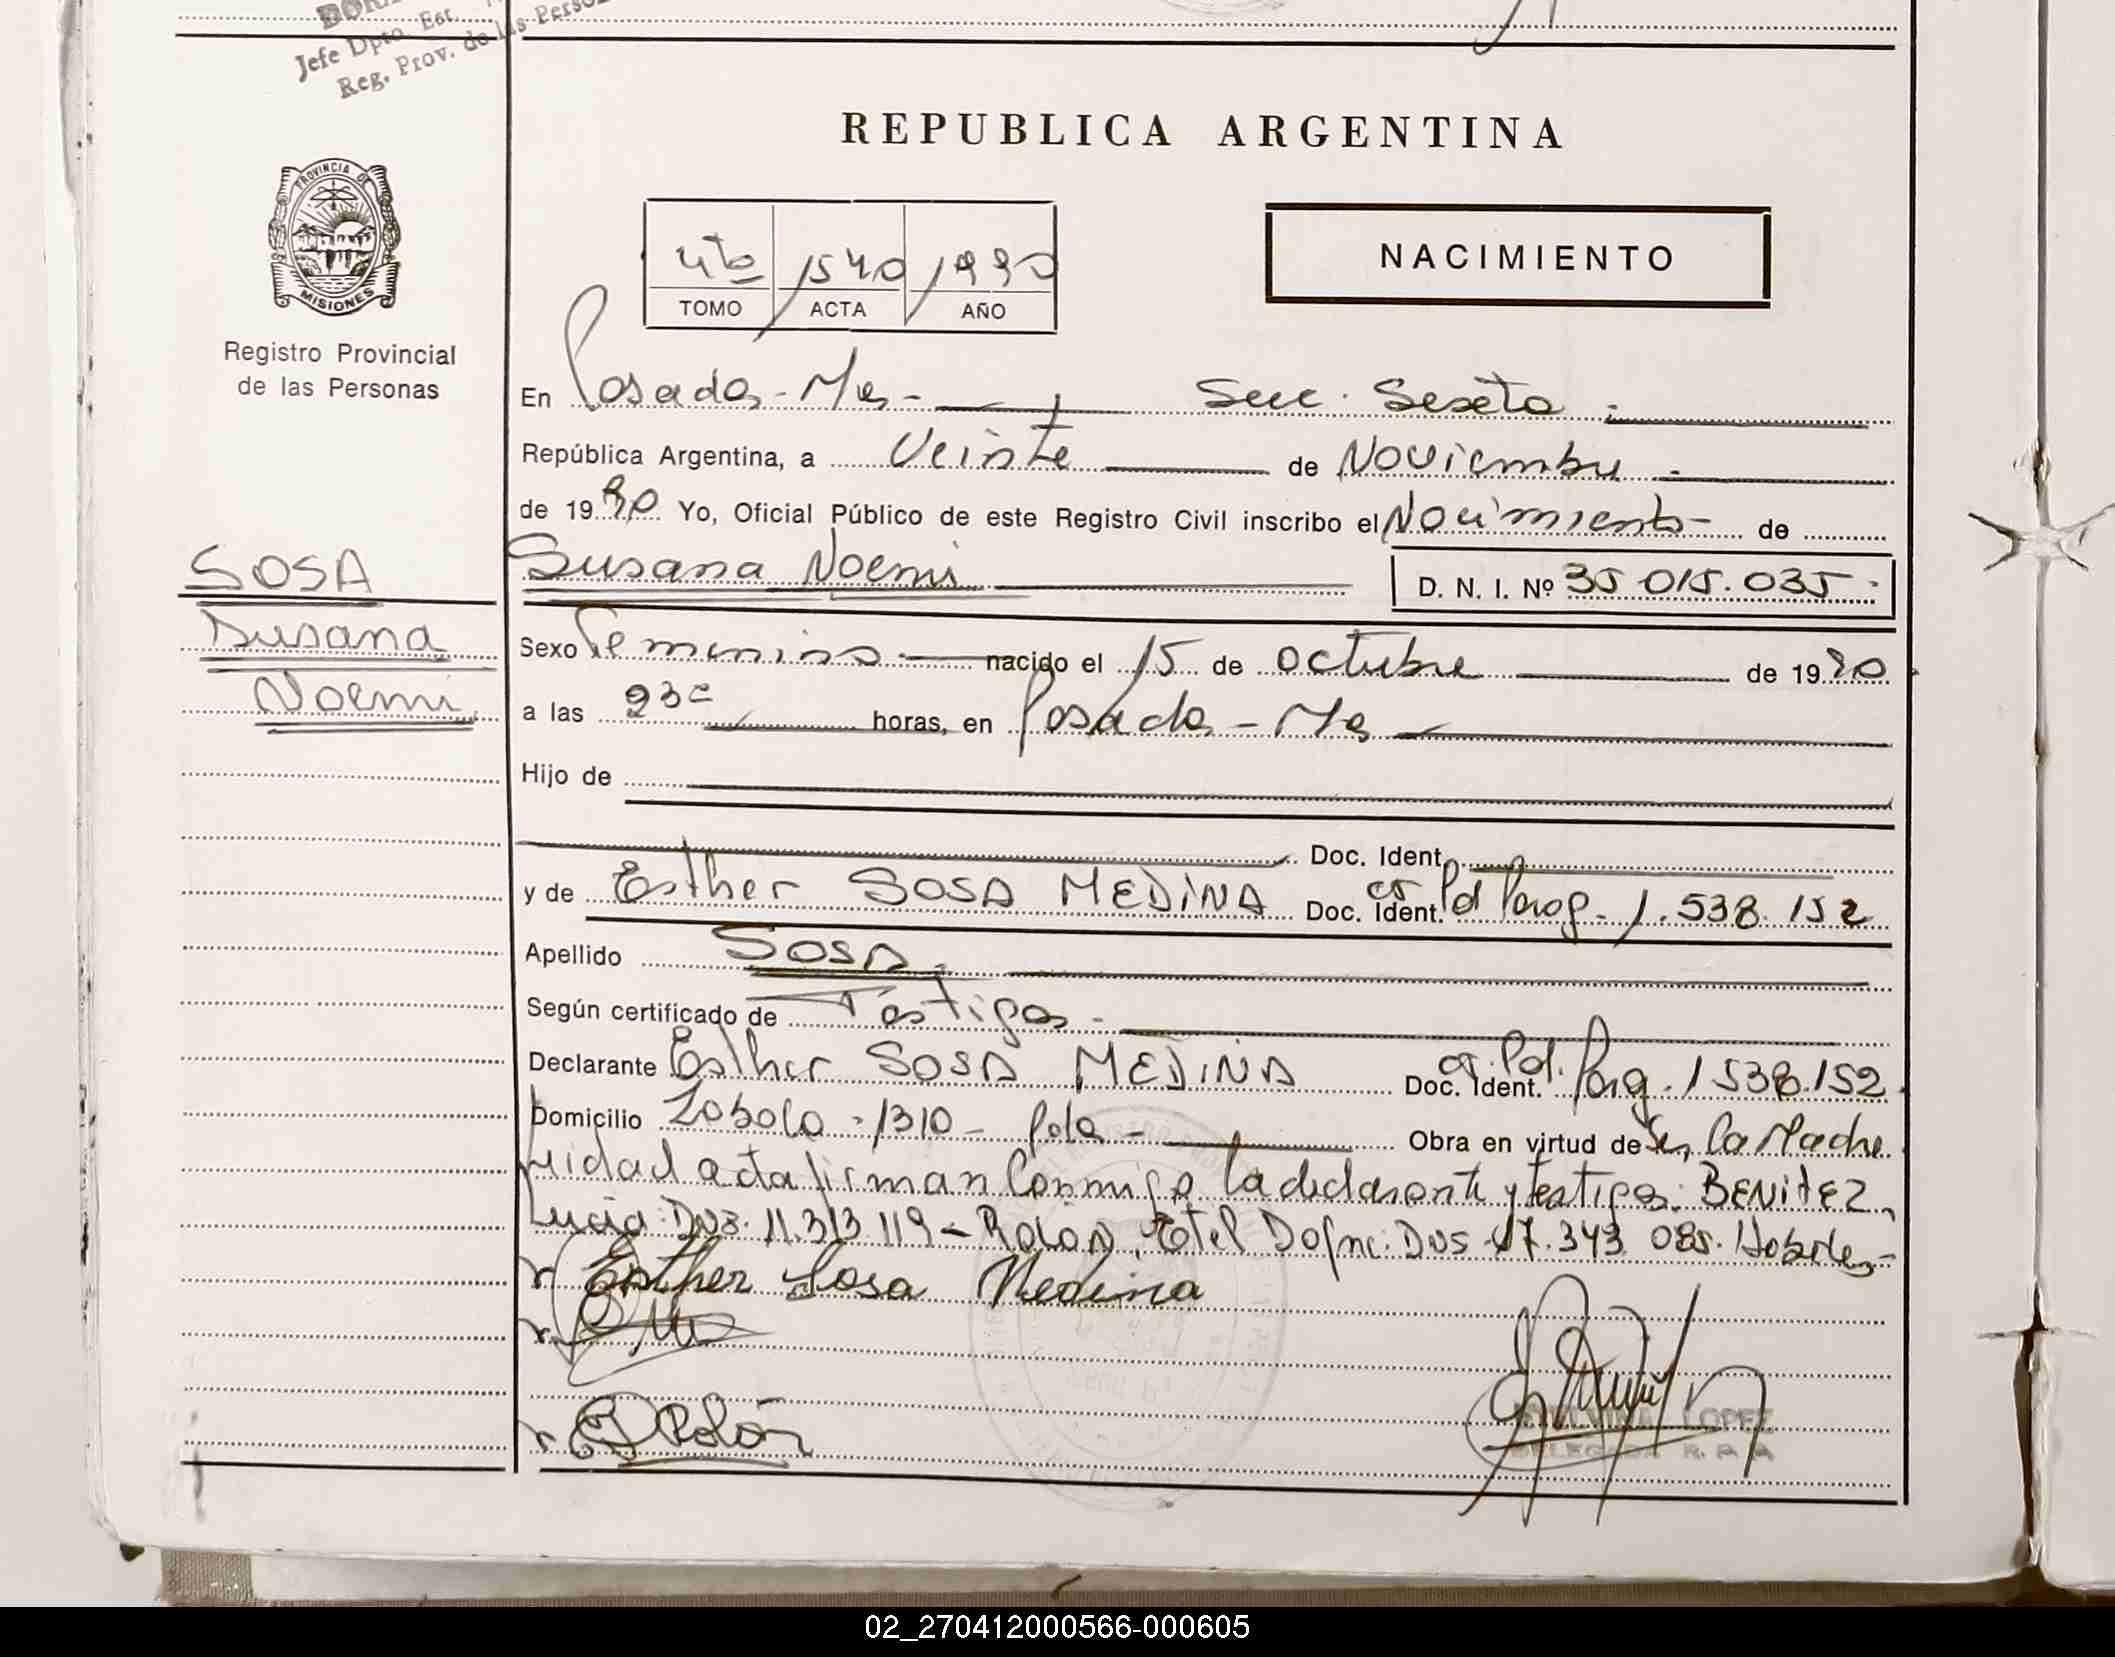 Jefe Dpto. Est.
Reg. Prov. de las Perso
REPUBLICA ARGENTINA
PROVINCIA DE
MISIONES
Registro Provincial
de las Personas
NACIMIENTO
4to 1540 1990
TOMO ACTA AÑO
En Posadas - Mes - Secc. Sexta
República Argentina, a Veinte de Noviembre
de 1990 Yo, Oficial Público de este Registro Civil inscribo el Nacimiento de
SOSA
Susana
Noemi
Susana Noemi D. N. I. Nº 35 015.035
Sexo Femenino nacido el 15 de octubre de 1990
a las 23 horas, en Posadas - Mes
Hijo de
Doc. Ident.
y de Esther SOSA MEDINA Doc. Ident. Pol Parag. 1.538.152
Apellido SOSA
Según certificado de Testigos
Declarante Esther SOSA MEDINA Doc. Ident. Pol. Parg. 1538.152
Domicilio Zabala - 1310 - Pdas - Obra en virtud de Ser la Madre
leida el acta firman conmigo la declarante y testigos: BENITEZ
Lucia: DNI. 11.313.119 - ROLON, Etel Dafne: DNI 17.343 085. Habiles
Esther Sosa Medina
E D Rolón
LOPEZ
DELEGADA R. P. A
02_270412000566-000605